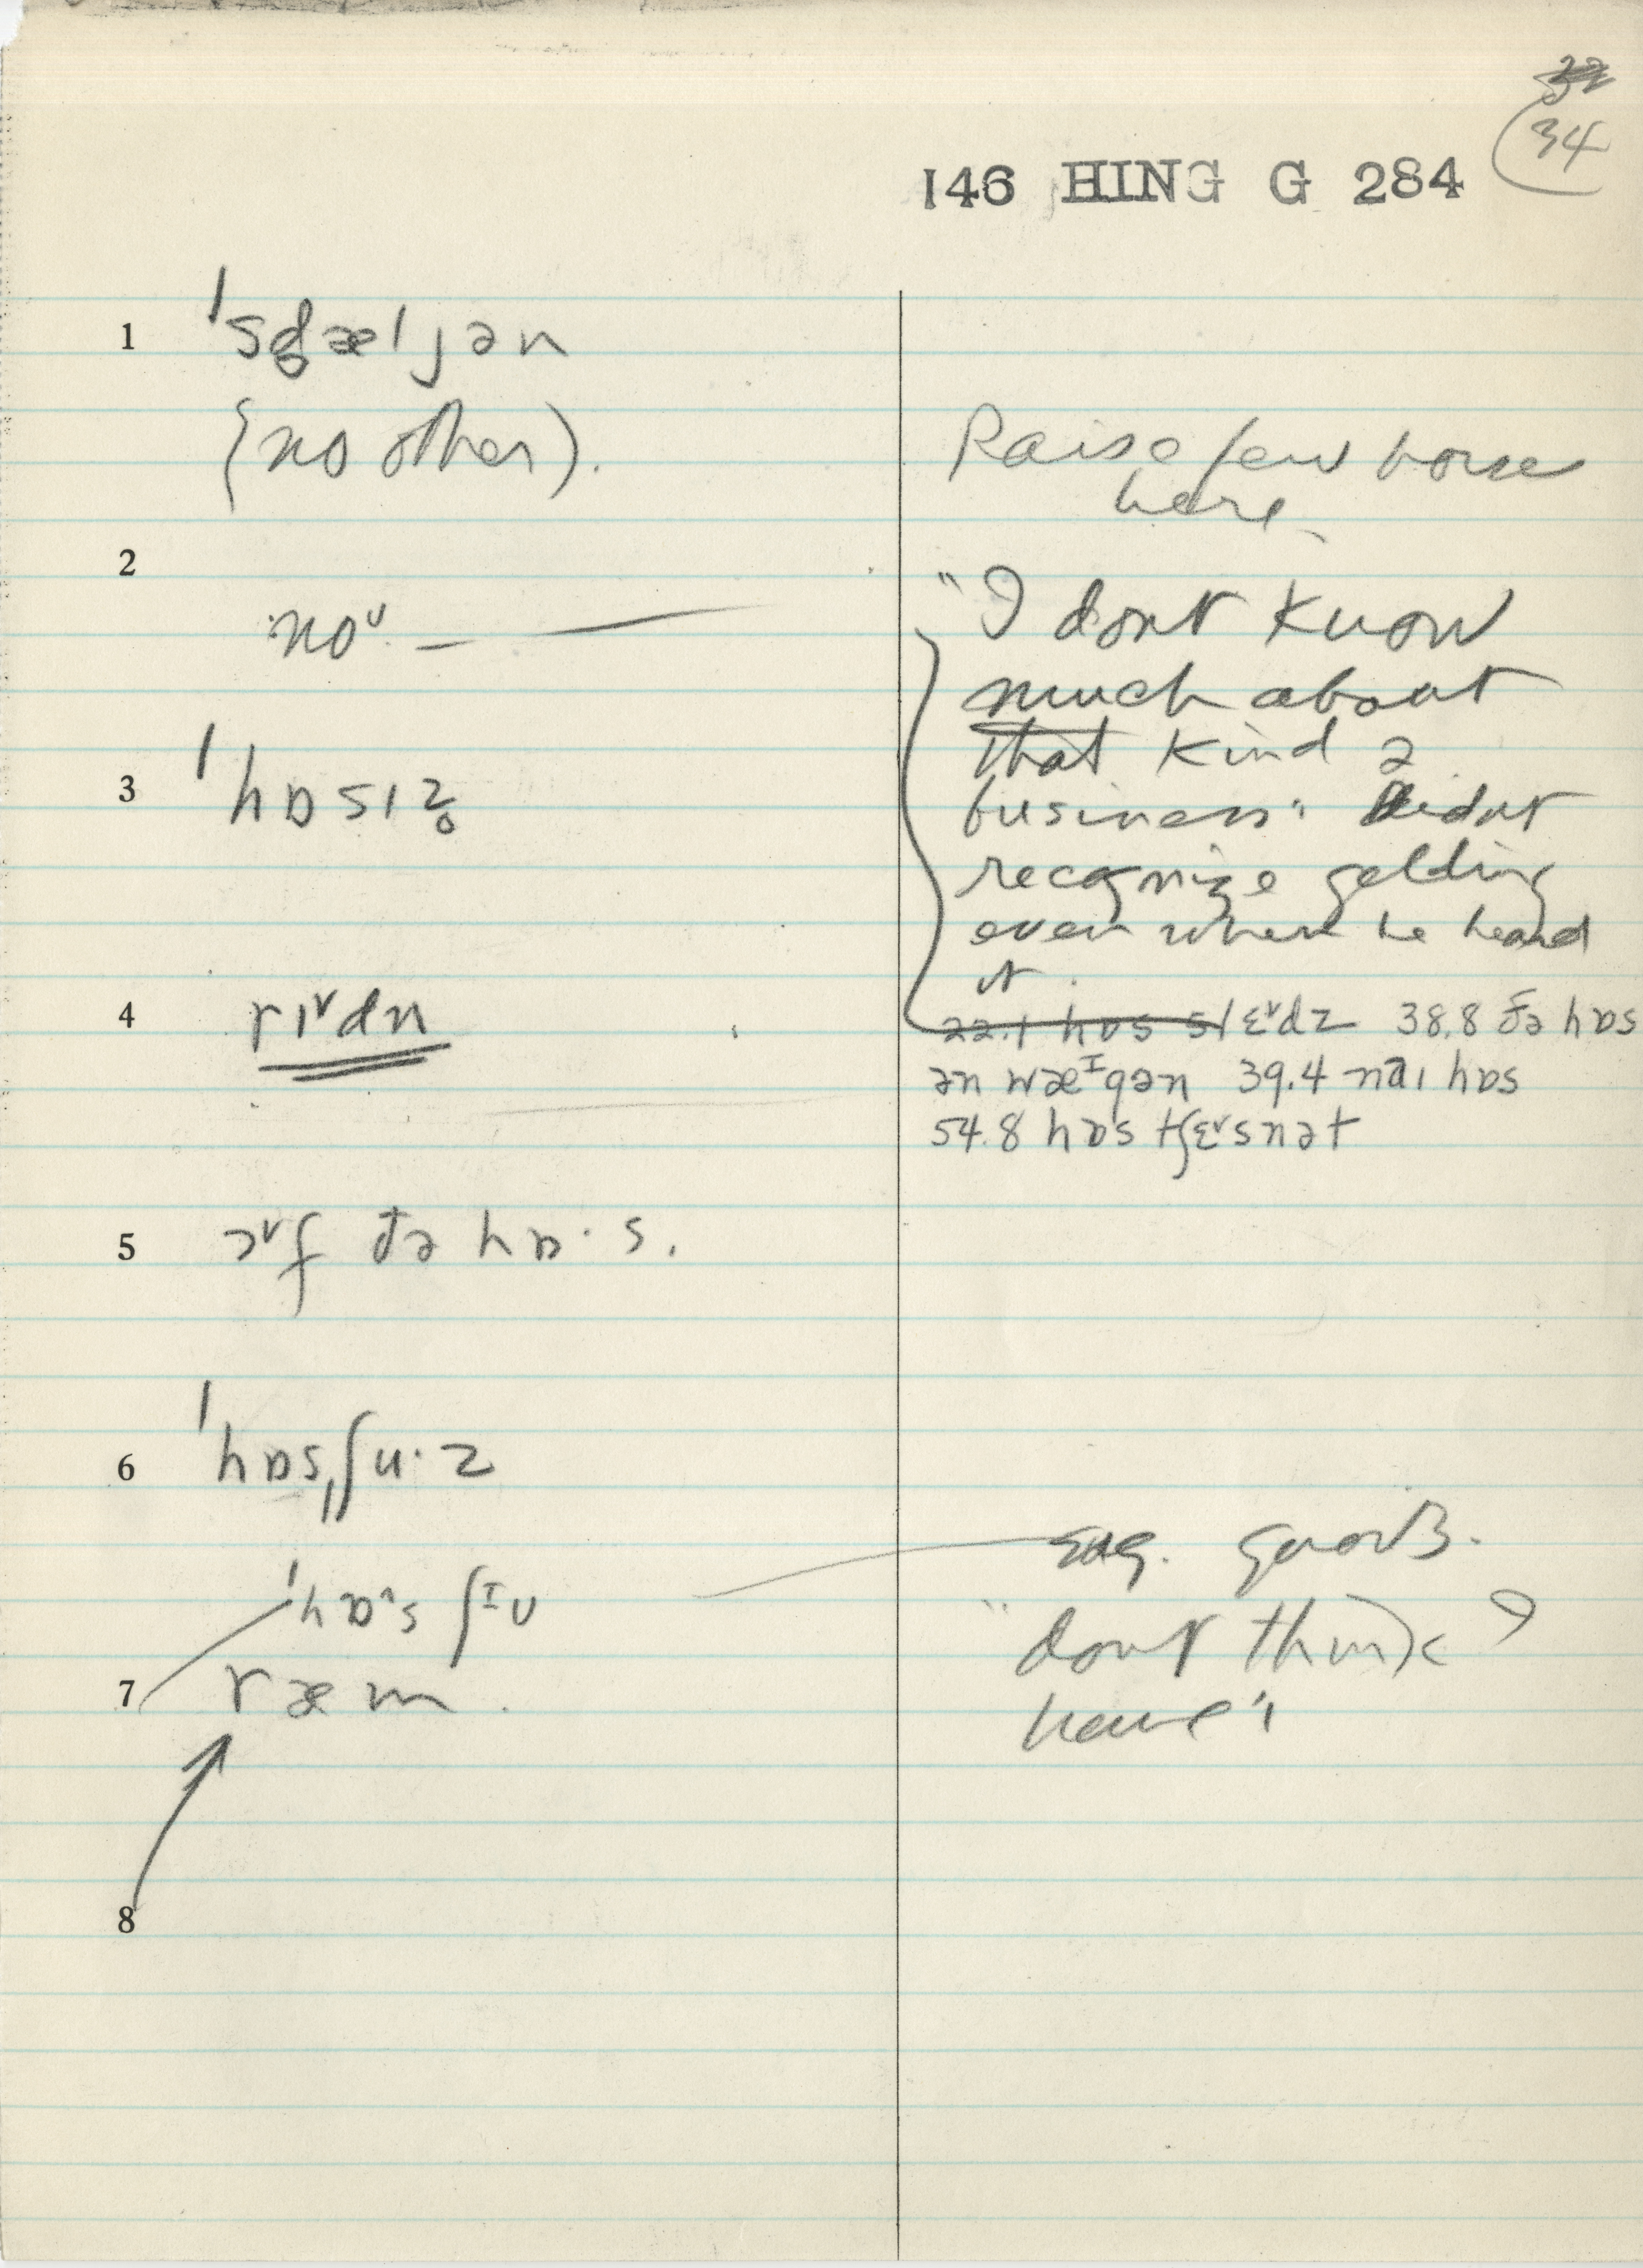 34
146 HING G 284
1 ˈsd̥æljən
(no other).
Raise few horse
here
2
noᵛ —
"I dont know
much about
that kind ə
business" Didnt
recognize gelding
even when he heard
it.
3 ˈhɒsɪz̥
4 rɪᵛdn
22.1 hɒs slɛᵛdz 38.8 ðə hɒs
ən wæᴵgən 39.4 naɪ hɒs
54.8 hɒs tʃɛᵛsnət
5 ɔᵛf ðə hɒ·s.
6 ˈhɒsˌʃu·z
ˈhɒˆs ʃᴵu
sug. quoits.
7 ræm.
"dont think I
have"
8